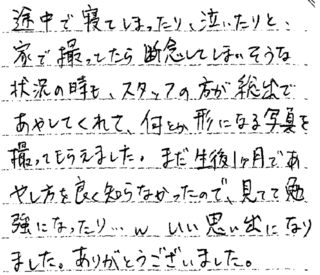 途中で寝てしまったり、泣いたりと、
家で撮ってたら断念してしまいそうな
状況の時も、スタッフの方が総出で
あやしてくれて、何とか形になる写真を
撮ってもらえました。まだ生後1ヶ月であ
やし方を良く知らなかったので、見てて勉
強になったり…w いい思い出になり
ました。ありがとうございました。